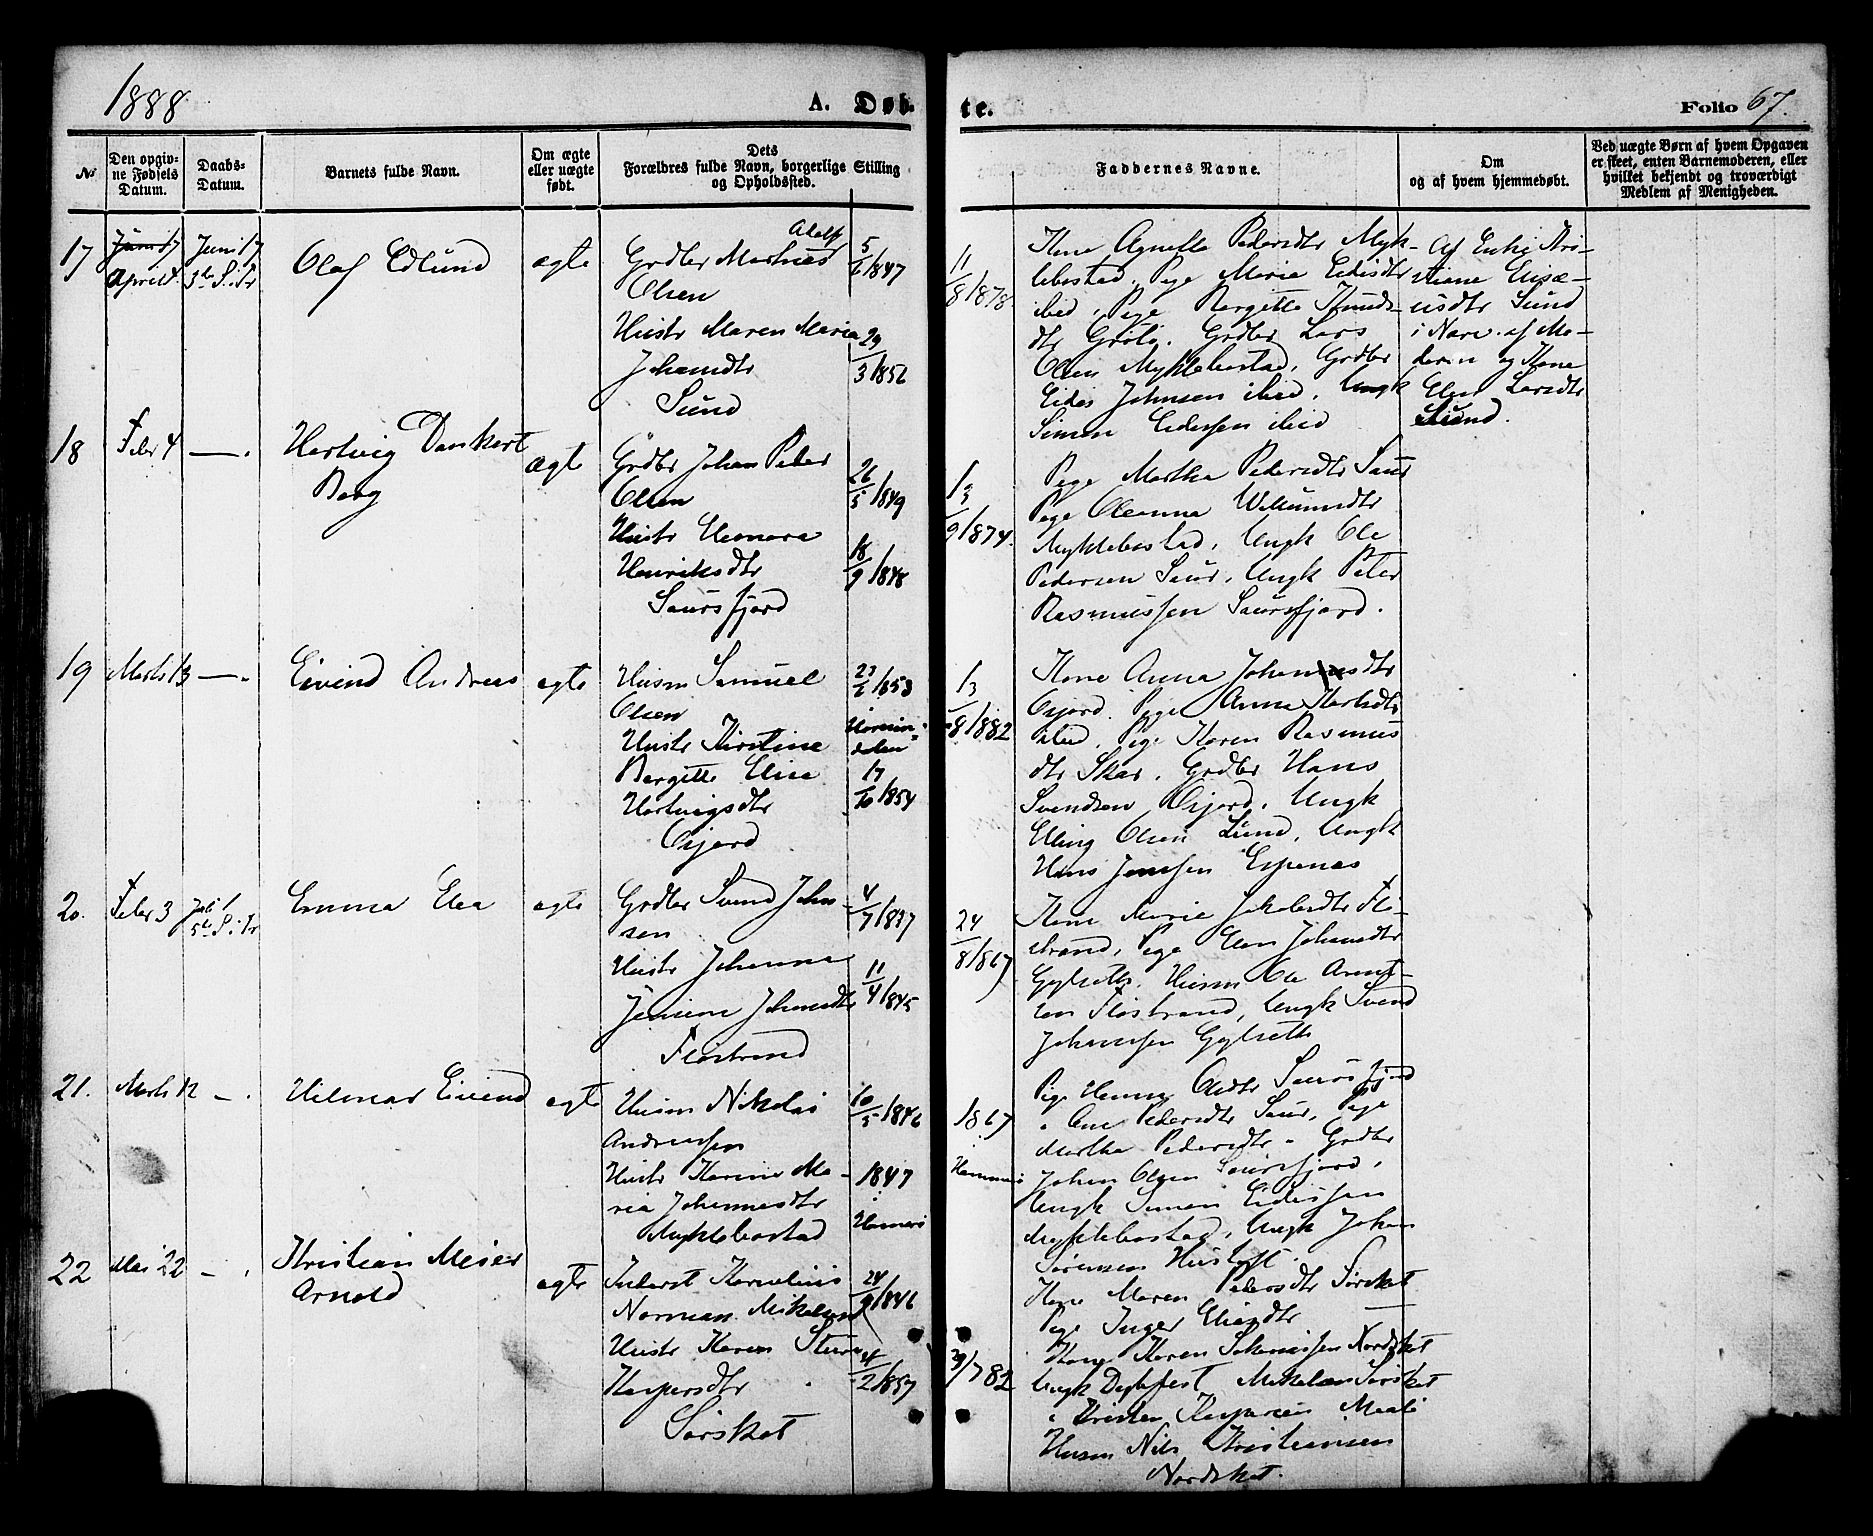 1888
A. Døb-
te.
Folio 67.
№
Den opgivne Fødsels Datum.
Daabs-Datum.
Barnets fulde Navn.
Om ægte eller uægte født.
Dets Forældres fulde Navn, borgerlige Stilling og Opholdssted.
Faddernes Navne.
Om og af hvem hjemmedøbt.
Ved uægte Børn af hvem Opgaven er skeet, enten Barnemoderen, eller hvilket bekjendt og troværdigt Medlem af Menigheden.
17
April
Juni 17
3de S. Tr
Olaf Edlund
ægte
Adolf
Grdbr Martnius
Olsen
Hustr Maren Maria
Johansdtr
Sund
5/ /1847
29/3 1856
11/8 1878
Kone Pedersdtr Myk-
lebostad, Pige Maria
ibid, Pige Bergitte Knuds-
dtr Grötö. Grdbr Lars
Olsen Myklebostad, Grdbr
Johnsen ibid, Ungk
Simon Edissen ibid
Af Enke Kri-
stiane
Sund
i Nærv. af Mo-
deren og Kone
Elen Larsdtr
Sund.
18
Febr 4
—.
Hartvig Dankert
Berg
ægte
Grdbr Johan Peter
Olsen
Hustr Eleonora
Henriksdtr
Saursfjord
26/5 1849
18/9 1848
13/9 1874.
Pige Martha Pedersdtr Saur
Pige Oleanna
Myklebostad, Ungk Ole
Pedersen Saur, Ungk Peter
Rasmussen Saursfjord.
19
Marts 13
—.
Eivind Andreas
ægte
Husm Samuel
Olsen
Hustr Kirstine
Bergitte Elisa
Hartvigsdtr
Osjord
17/10 1854
13/8 1882
Kone Anna Johannsdtr
Osjord. Pige Anna
ibid, Pige Karen Rasmus
dtr Skar, Grdbr Hans
Svendsen Osjord, Ungk
Elling Olsen Lund, Ungk
Hans Jenssen Espenæs
20.
Febr 3
Juli 1
5te S. Tr
Emma Elea
ægte
Grdbr Svend John
sen
Hustr Johanna
Johansdtr
Flostrand
4/7 1837
11/4 1845
24/8 1867
Kone Maria Jakobsdtr Flo-
strand, Pige Johansdtr
Gylseth. Husm Ole Arnt-
sen Flostrand, Ungk Svend
Johanssen Gylseth
21.
Marts 12
—.
Hilmar Eivind
ægte
Husm Nikolai
Andreassen
Hustr Karine Ma-
ria Johannesdtr
Myklebostad
10/5 1846
1847
Hamarö
1867
Hammerö
Pige Hanna Olsdtr Saursfjord
" Ane Pedersdtr Saur, Pige
Martha Pedersdtr " Grdbr
Johan Olsen Saursfjord,
Ungk Simon Edissen
Myklebostad, Ungk Johan
Sörensen
22
Mai 22
—.
Kristian Meier
Arnold
ægte
Inderst Kornelius
Norman Mikelsen
Hustr Karen
Kaspersdtr
Sörsket
24/9 1846
4/2 1857
29/7 82
Kone Maren Pedersdtr Sörsket
Pige Inger
Kone Karen Nordsket
Ungk Mikelsen Sörsket
" Kristen Kaspersen
Husm Nils Kristiansen
Nordsket.